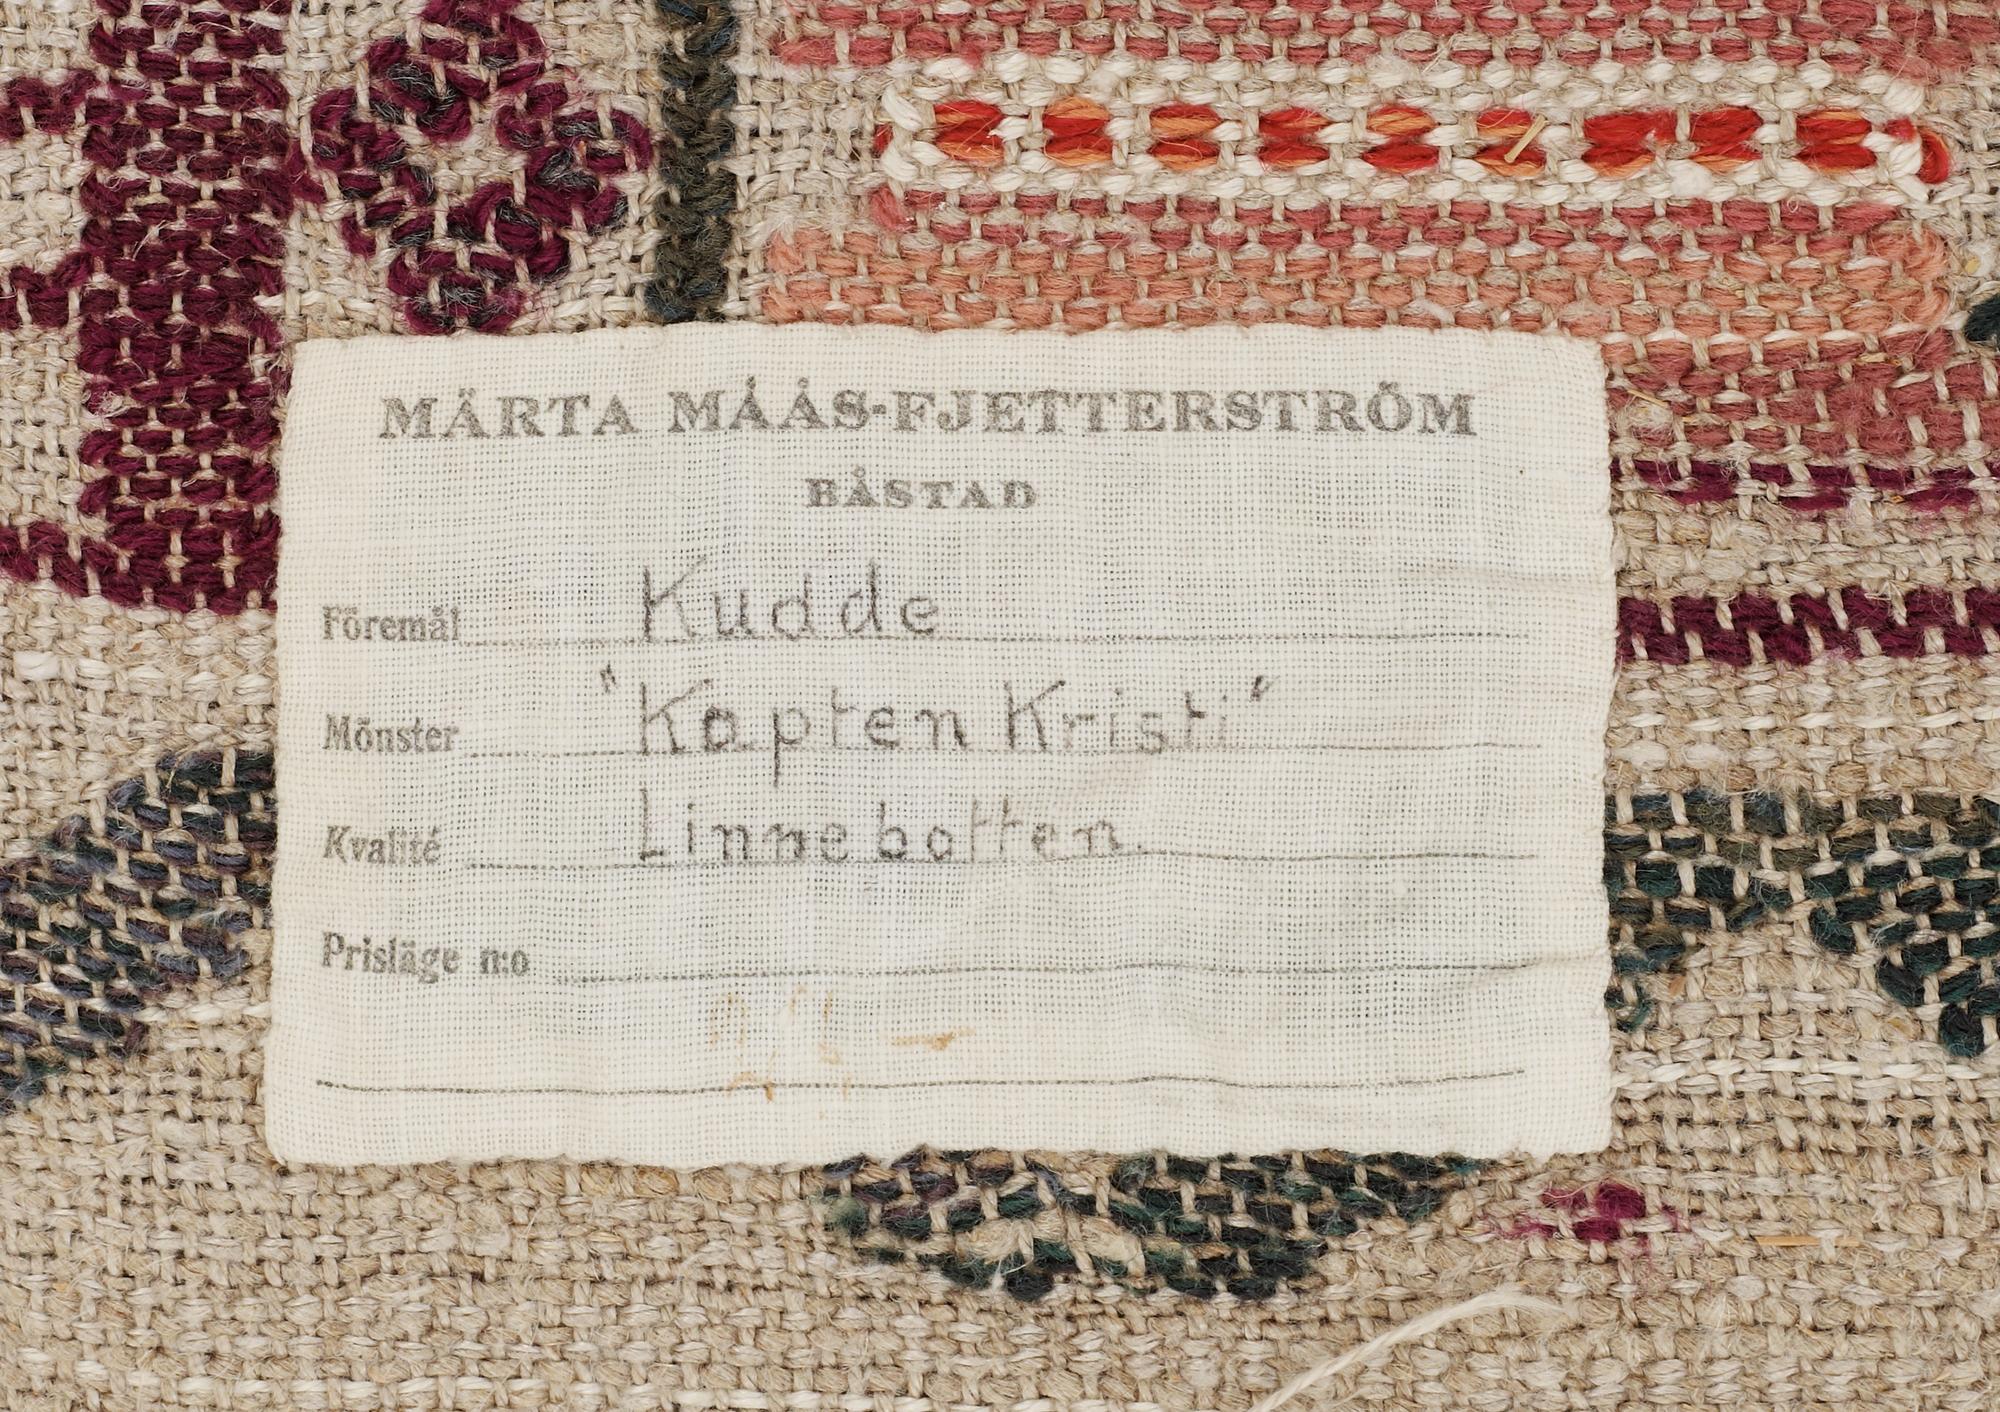 MÄRTA MÅÅS-FJETTERSTRÖM
BÅSTAD
Föremål Kudde
Mönster "Kapten Kristi"
Kvalité Linnebotten.
Prisläge n:o